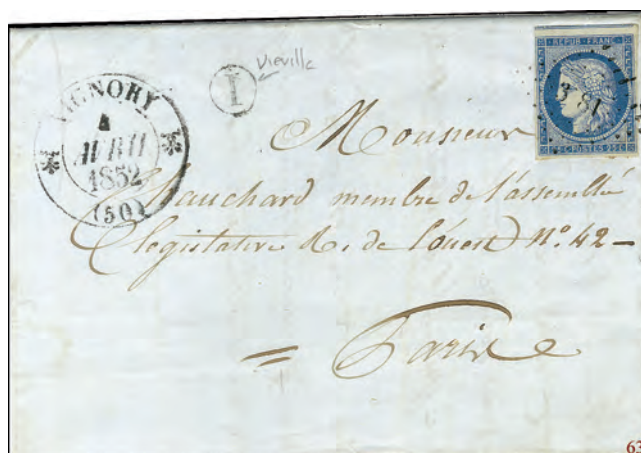 VIGNORY
4
AVRIL
1852
(50)
I
Vieville
REPUB. FRANC.
25c POSTES 25c
Monsieur
Chauchard membre de l'assemblé
législative R. de l'ouest N° 42 –
= Paris
63